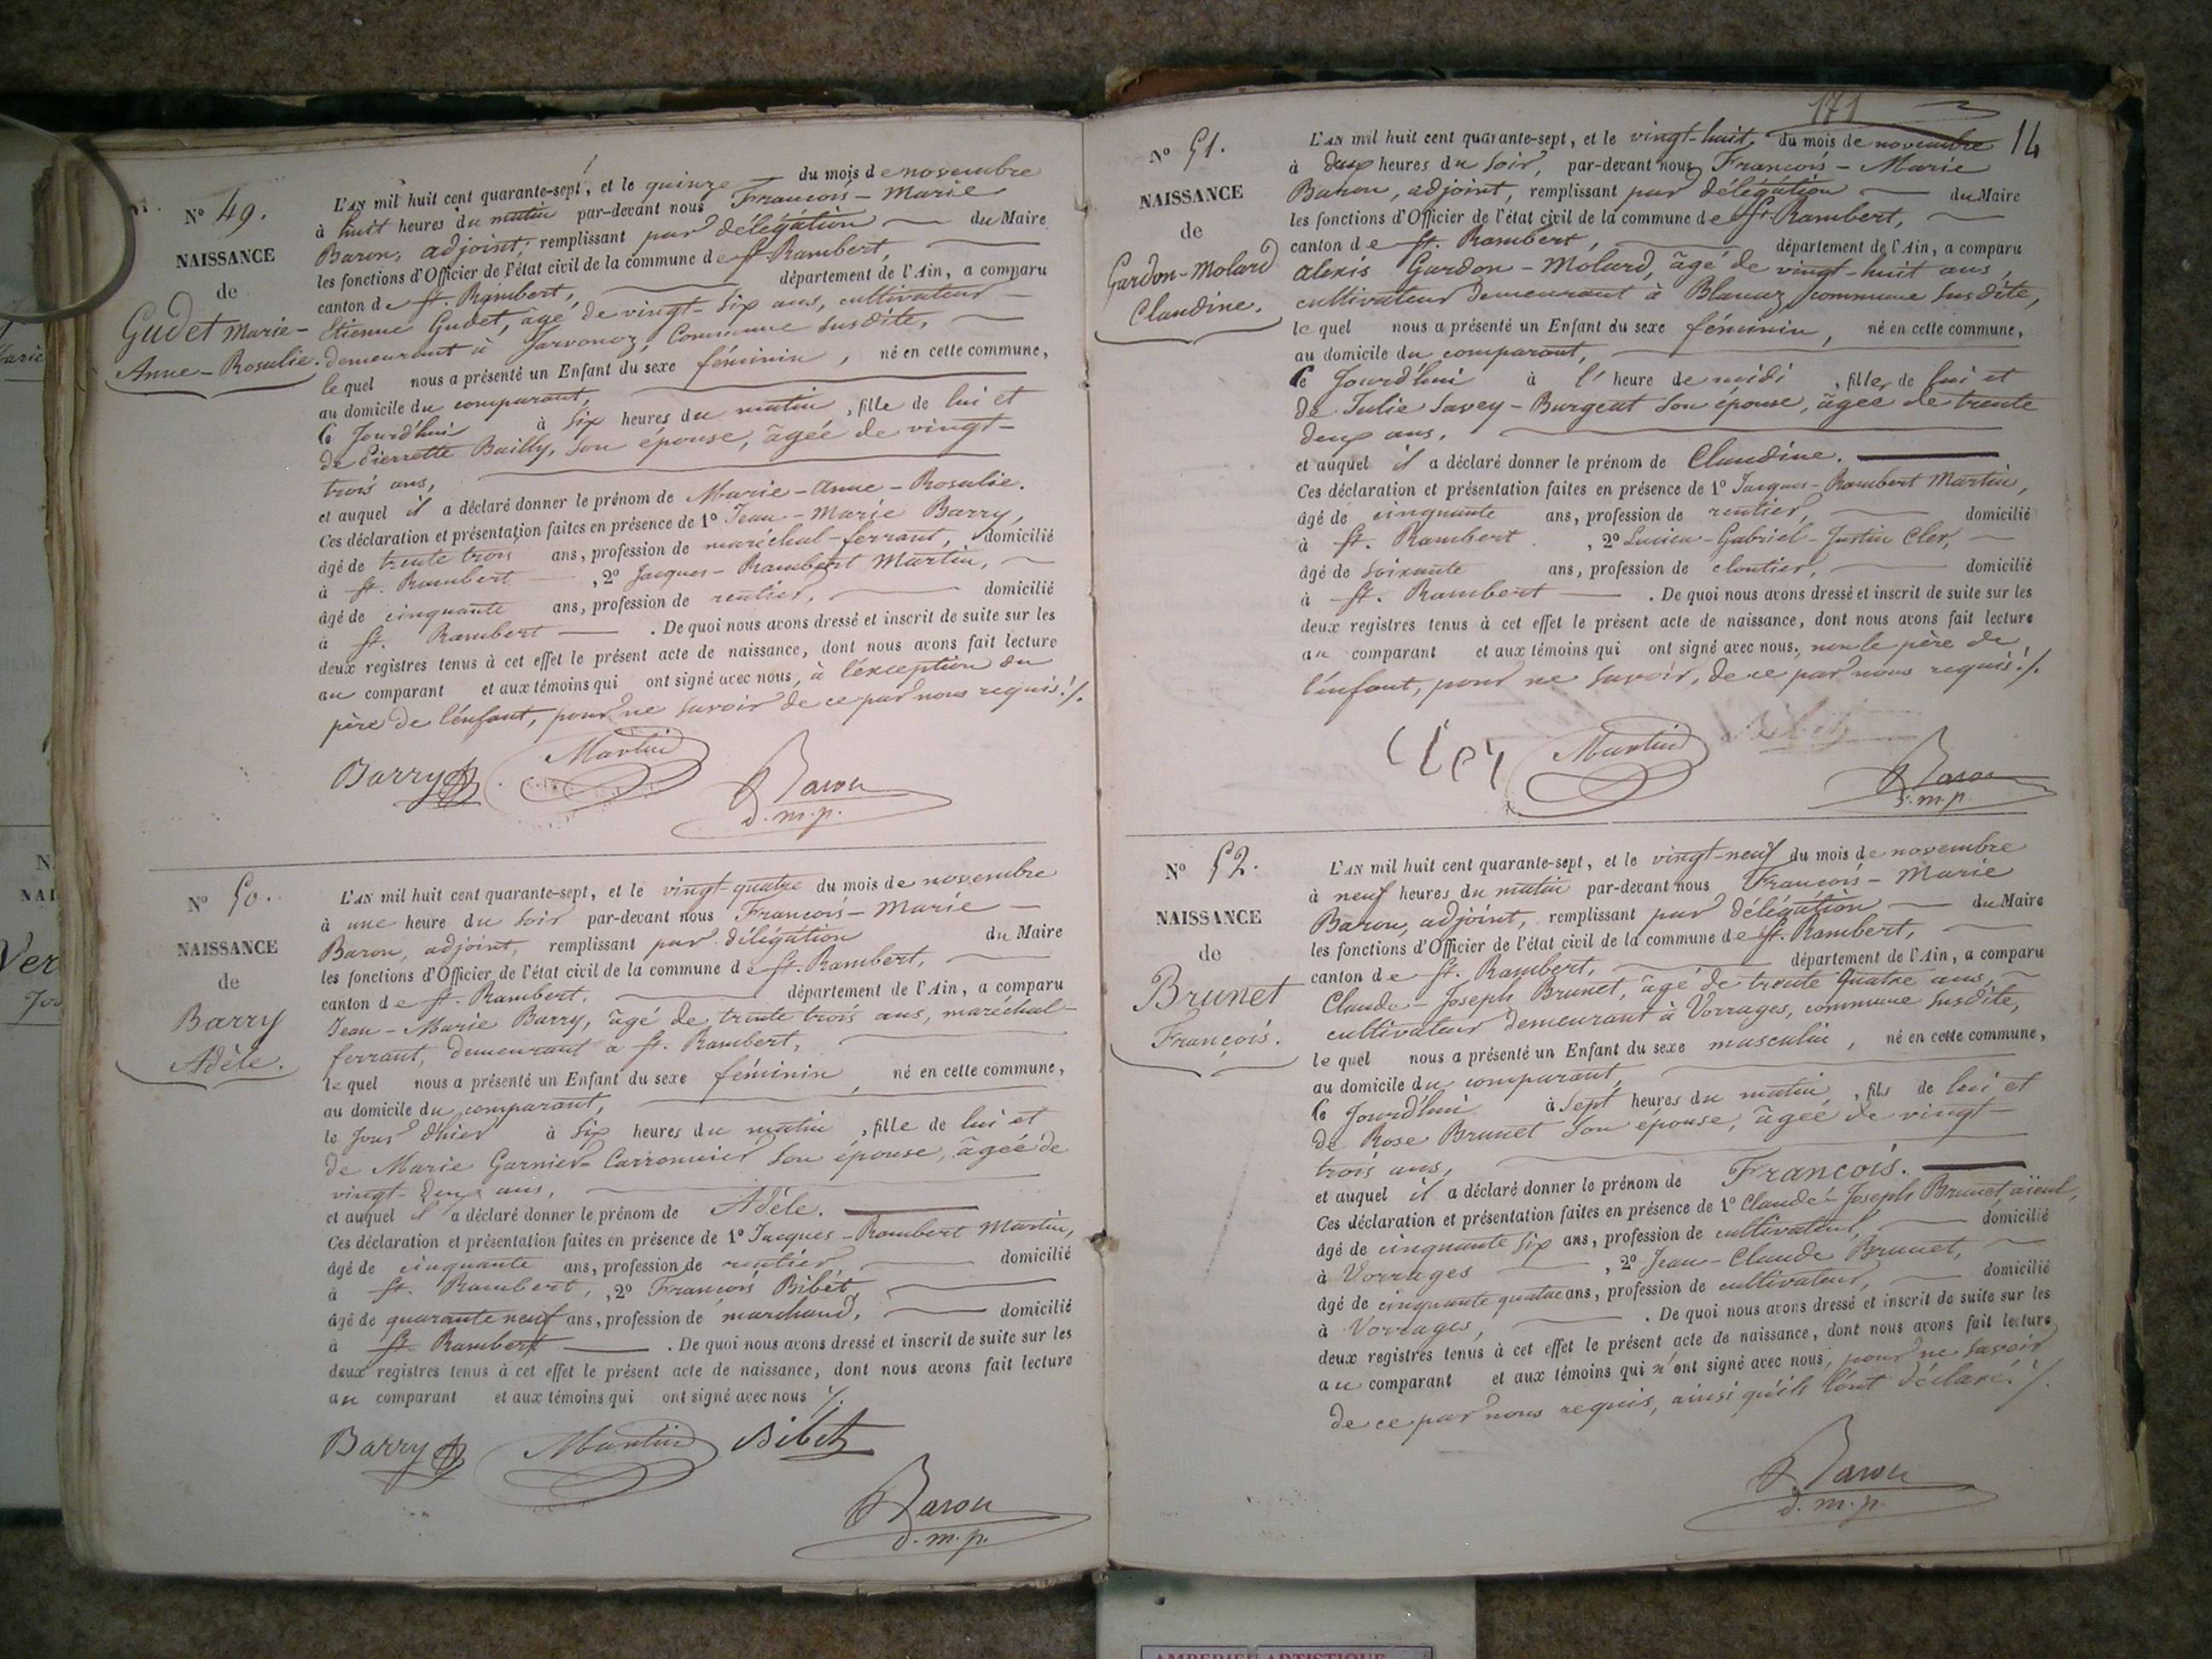 N° 49.
NAISSANCE
de
Gudet Marie-
Anne-Rosalie.
L'AN mil huit cent quarante-sept, et le quinze du mois de novembre
à huit heures du matin par-devant nous François-Marie
Baron, adjoint, remplissant par délégation du Maire
les fonctions d'Officier de l'état civil de la commune de St. Rambert,
canton de St. Rambert, département de l'Ain, a comparu
Etienne Gudet, âgé de vingt-six ans, cultivateur
demeurant à Javonoz, Commune susdite,
lequel nous a présenté un Enfant du sexe féminin, né en cette commune,
au domicile du comparant,
Ce Jourd'hui à six heures du matin, fille de lui et
de Pierrette Bailly, son épouse, âgée de vingt-
trois ans,
et auquel il a déclaré donner le prénom de Marie-Anne-Rosalie.
Ces déclaration et présentation faites en présence de 1° Jean-Marie Barry,
âgé de trente trois ans, profession de maréchal-ferrant, domicilié
à St. Rambert, 2° Jacques-Rambert Martin,
âgé de cinquante ans, profession de rentier, domicilié
à St. Rambert. De quoi nous avons dressé et inscrit de suite sur les
deux registres tenus à cet effet le présent acte de naissance, dont nous avons fait lecture
au comparant et aux témoins qui ont signé avec nous, à l'exception du
père de l'enfant, pour ne savoir de ce par nous requis ./.
Barry Martin Baron
d.m.p.
N° 50.
NAISSANCE
de
Barry
Adèle.
L'AN mil huit cent quarante-sept, et le vingt-quatre du mois de novembre
à une heure du soir par-devant nous François-Marie
Baron, adjoint, remplissant par délégation du Maire
les fonctions d'Officier de l'état civil de la commune de St. Rambert,
canton de St. Rambert, département de l'Ain, a comparu
Jean-Marie Barry, âgé de trente trois ans, maréchal-
ferrant, demeurant à St. Rambert,
lequel nous a présenté un Enfant du sexe féminin, né en cette commune,
au domicile du comparant,
le Jour d'hier à six heures du matin, fille de lui et
de Marie Garnier-Carronnier son épouse, âgée de
vingt-deux ans,
et auquel il a déclaré donner le prénom de Adèle.
Ces déclaration et présentation faites en présence de 1° Jacques-Rambert Martin,
âgé de cinquante ans, profession de rentier domicilié
à St. Rambert, 2° François Bibet,
âgé de quarante neuf ans, profession de marchand, domicilié
à St. Rambert. De quoi nous avons dressé et inscrit de suite sur les
deux registres tenus à cet effet le présent acte de naissance, dont nous avons fait lecture
au comparant et aux témoins qui ont signé avec nous ./.
Barry Martin Bibet
Baron
d.m.p.
171
14
N° 51.
NAISSANCE
de
Gardon-Molard
Claudine.
L'AN mil huit cent quarante-sept, et le vingt-huit du mois de novembre
à deux heures du soir, par-devant nous François-Marie
Baron, adjoint, remplissant par délégation du Maire
les fonctions d'Officier de l'état civil de la commune de St. Rambert,
canton de St. Rambert, département de l'Ain, a comparu
alexis Gardon-Molard, âgé de vingt-huit ans,
cultivateur demeurant à Blanaz commune susdite,
lequel nous a présenté un Enfant du sexe féminin, né en cette commune,
au domicile du comparant,
Ce Jourd'hui à l'heure de midi, fille de lui et
de Julie Savey-Burgeat son épouse, âgée de trente
deux ans,
et auquel il a déclaré donner le prénom de Claudine.
Ces déclaration et présentation faites en présence de 1° Jacques-Rambert Martin,
âgé de cinquante ans, profession de rentier, domicilié
à St. Rambert, 2° Lucien-Gabriel-Justin Cler,
âgé de soixante ans, profession de cloutier, domicilié
à St. Rambert. De quoi nous avons dressé et inscrit de suite sur les
deux registres tenus à cet effet le présent acte de naissance, dont nous avons fait lecture
au comparant et aux témoins qui ont signé avec nous, non le père de
l'enfant, pour ne savoir, de ce par nous requis ./.
Cler Martin
Baron
d.m.p.
N° 52.
NAISSANCE
de
Brunet
François.
L'AN mil huit cent quarante-sept, et le vingt-neuf du mois de novembre
à neuf heures du matin par-devant nous François-Marie
Baron, adjoint, remplissant par délégation du Maire
les fonctions d'Officier de l'état civil de la commune de St. Rambert,
canton de St. Rambert, département de l'Ain, a comparu
Claude-Joseph Brunet, âgé de trente quatre ans,
cultivateur demeurant à Vorrages, commune susdite,
lequel nous a présenté un Enfant du sexe masculin, né en cette commune,
au domicile du comparant,
Ce Jourd'hui à sept heures du matin, fils de lui et
de Rose Brunet son épouse, âgée de vingt-
trois ans,
et auquel il a déclaré donner le prénom de François.
Ces déclaration et présentation faites en présence de 1° Claude-Joseph Brunet, aïeul,
âgé de cinquante six ans, profession de cultivateur, domicilié
à Vorrages, 2° Jean-Claude Brunet,
âgé de cinquante quatre ans, profession de cultivateur, domicilié
à Vorrages,. De quoi nous avons dressé et inscrit de suite sur les
deux registres tenus à cet effet le présent acte de naissance, dont nous avons fait lecture
au comparant et aux témoins qui n'ont signé avec nous, pour ne savoir
de ce par nous requis, ainsi qu'ils l'ont déclaré ./.
Baron
d.m.p.
AMBERIEU ARTISTIQUE